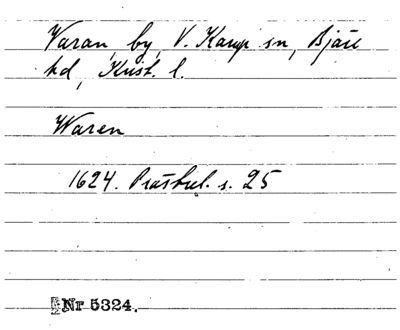 Varan, by, V. Karup sn, Bjäre
hd, Krist. l.
Waren
1624. Prästrel. s. 25
Nr 5324.